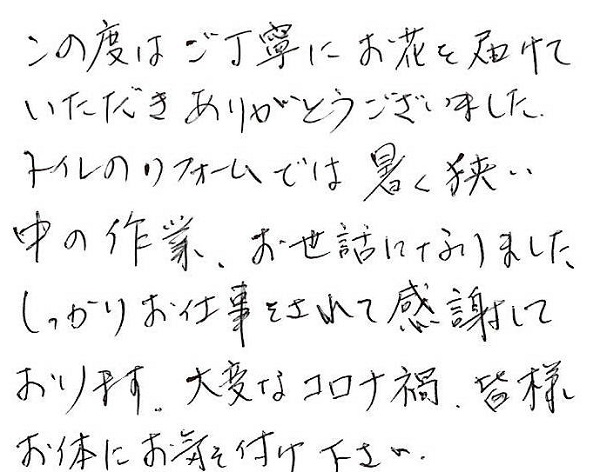 この度はご丁寧にお花を届けて
いただきありがとうございました.
トイレのリフォームでは暑く狭い
中の作業、お世話になりました、
しっかりお仕事をされて感謝して
おります。大変なコロナ禍、皆様
お体にお気を付け下さい.